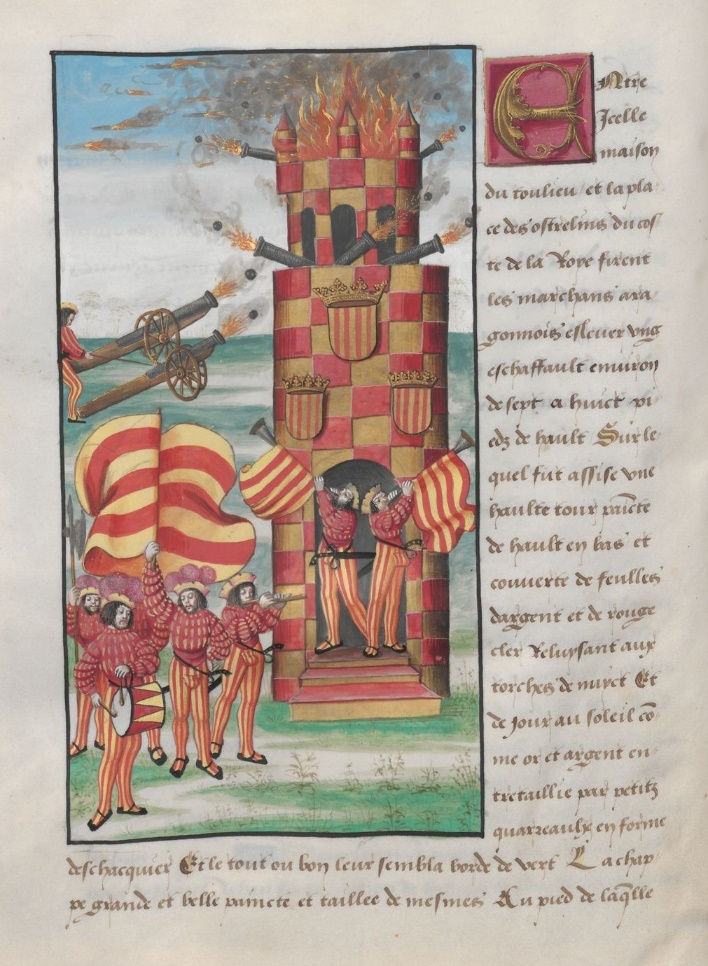 Entre
Jcelle
maison
du toulieu et la pla
ce des ostrelins du cos
te de la Roye firent
les marchans ara
gonnois eslever vng
eschaffault enuiron
de sept a huict pi
edz de hault Sur le
quel fut assise vne
haulte tour paĩcte
de hault en bas et
couuerte de feulles
dargent et de rouge
cler Reluysant aux
torches de nuyct Et
de Jour au soleil cõ
me or et argent en
tretaillie par petitz
quarreaulx en forme
deschacquier Et le tout ou bon leur sembla borde de vert La chap
pe grande et belle paincte et taillee de mesmes Au pied de laq̃lle